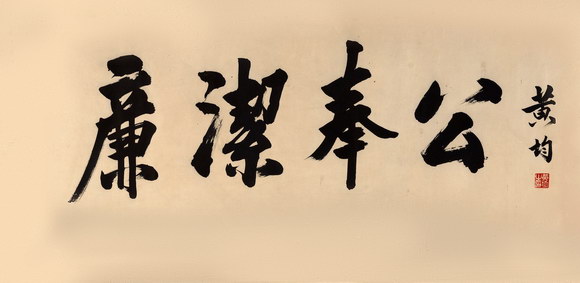 廉潔奉公
黄均